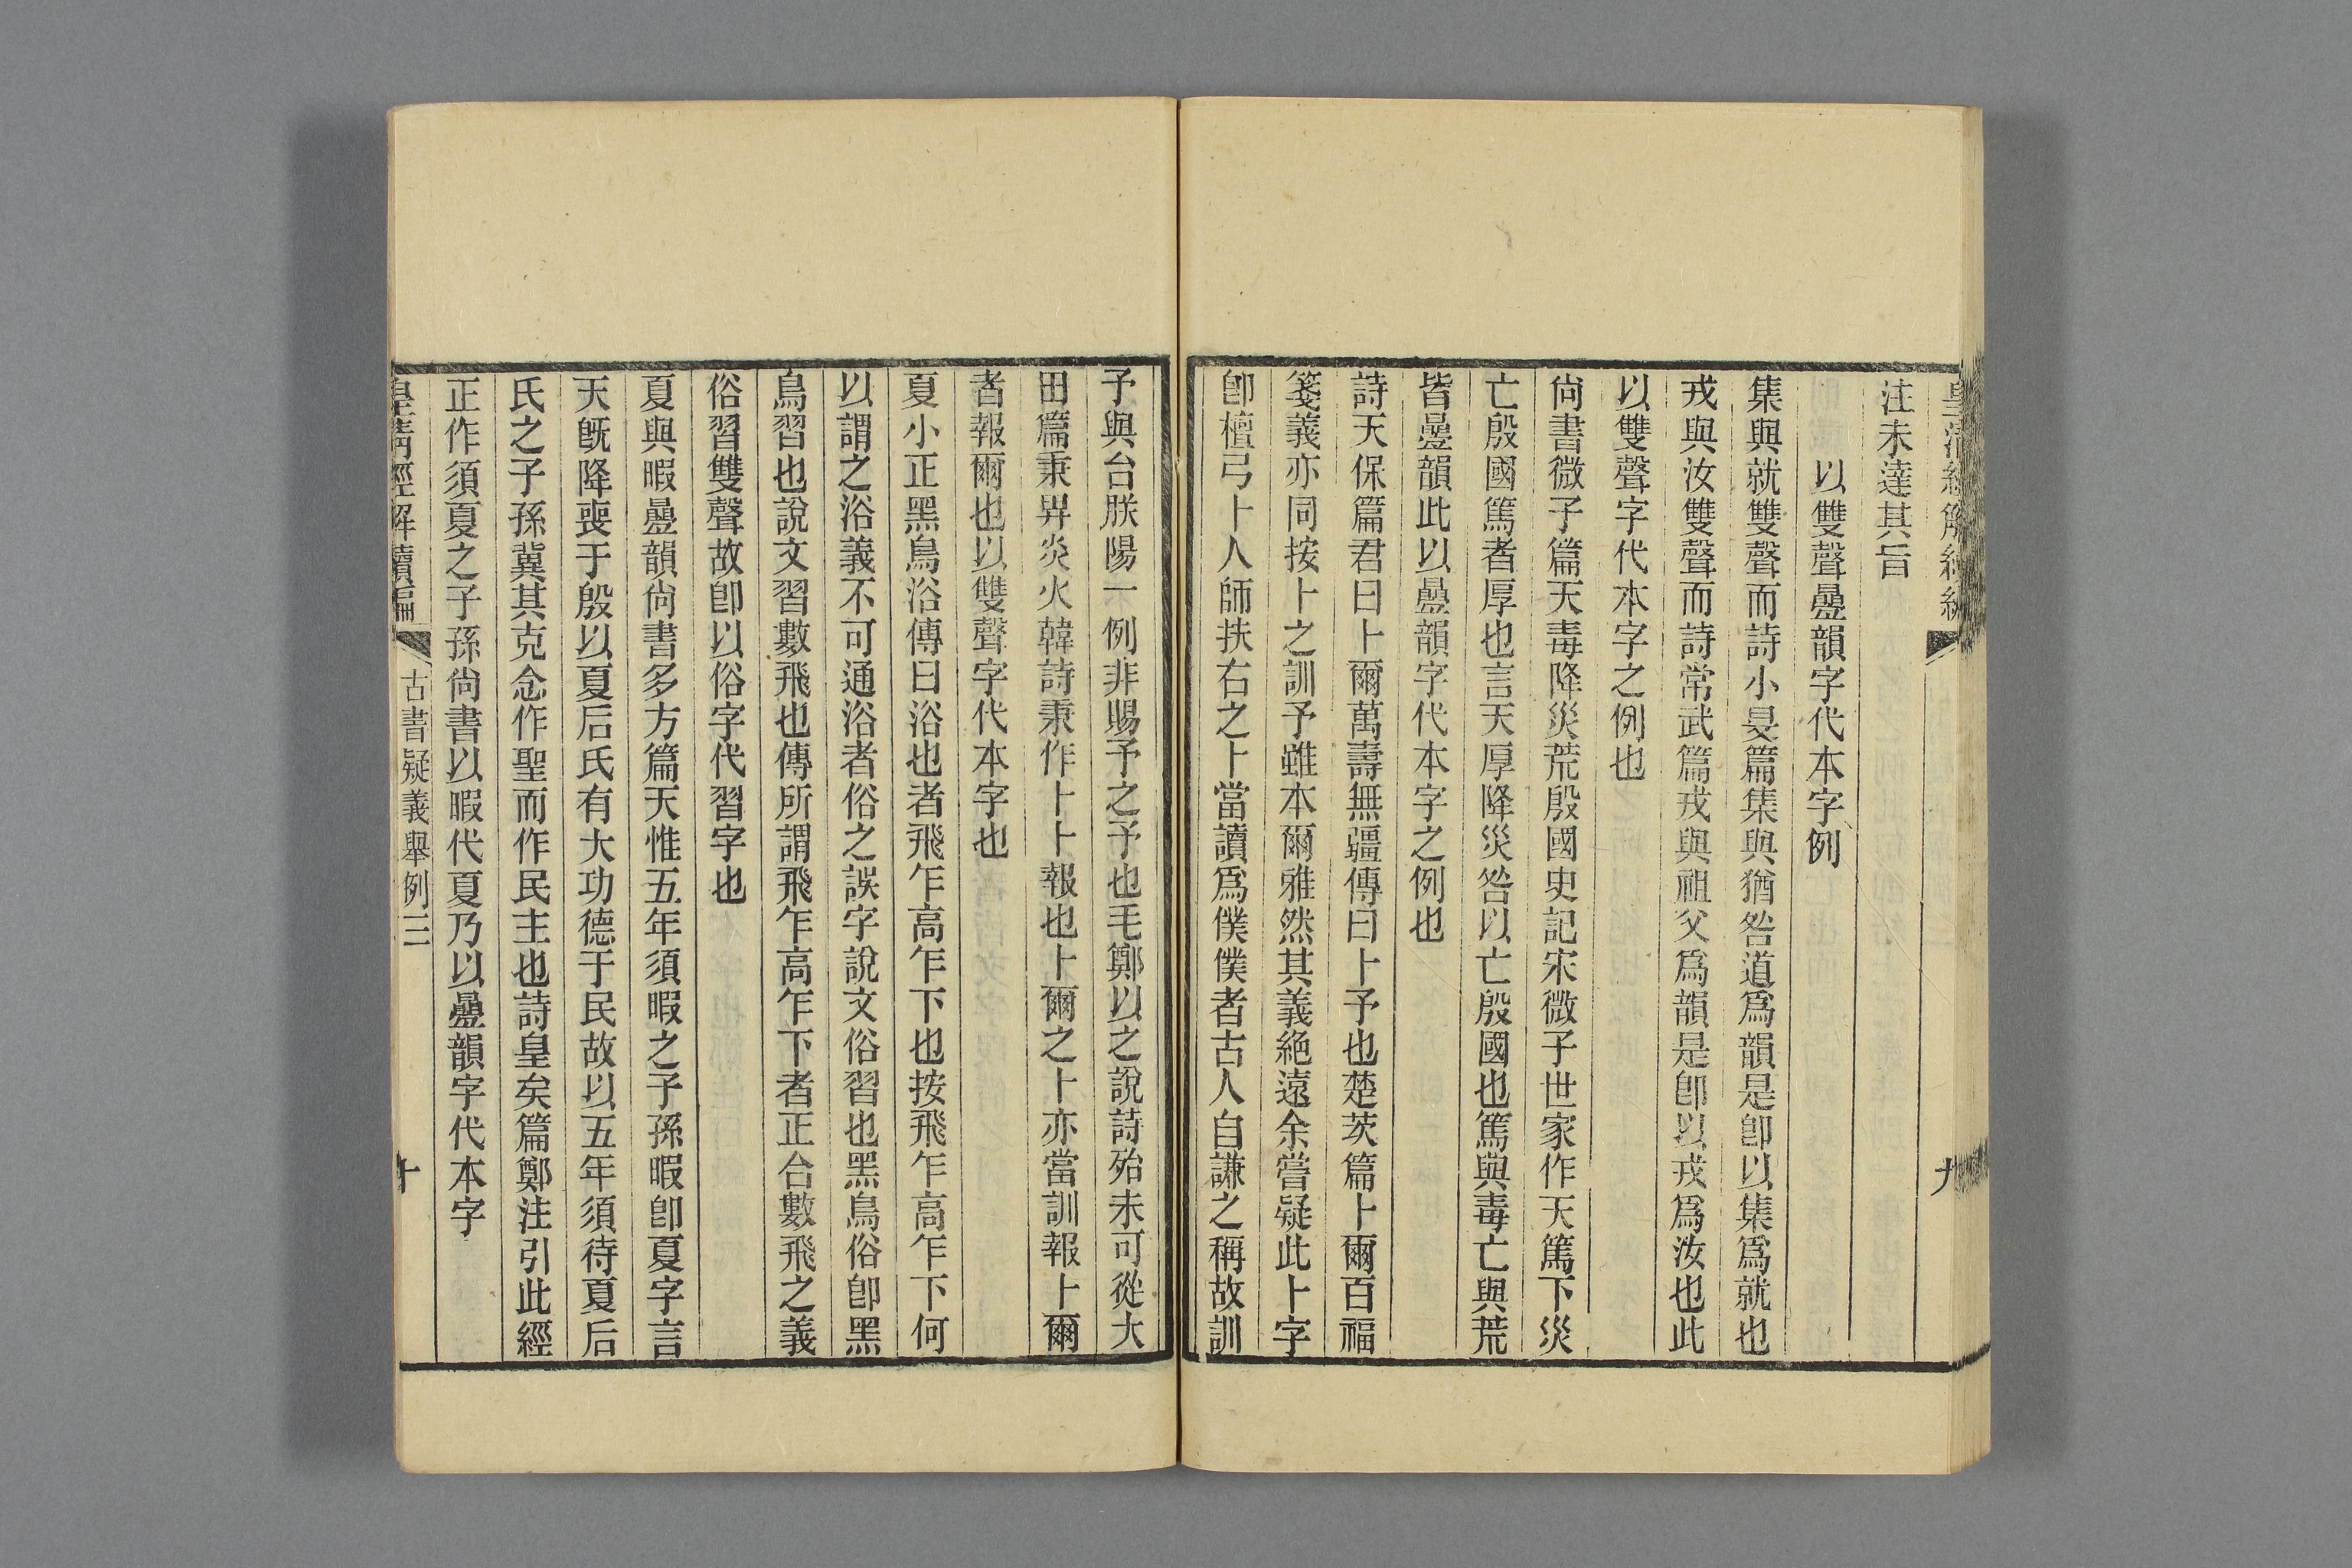 皇清經解續編
九
注未達其旨
以雙聲疊韻字代本字例
集與就雙聲而詩小旻篇集與猶咎道爲韻是卽以集爲就也
戎與汝雙聲而詩常武篇戎與祖父爲韻是卽以戎爲汝也此
以雙聲字代本字之例也
尙書微子篇天毒降災荒殷國史記宋微子世家作天篤下災
亡殷國篤者厚也言天厚降災咎以亡殷國也篤與毒亡與荒
皆疊韻此以疊韻字代本字之例也
詩天保篇君曰卜爾萬壽無疆傳曰卜予也楚茨篇卜爾百福
箋義亦同按卜之訓予雖本爾雅然其義絶遠余嘗疑此卜字
卽檀弓卜人師扶右之卜當讀爲僕僕者古人自謙之稱故訓
予與台朕陽一例非賜予之予也毛鄭以之說詩殆未可從大
田篇秉畀炎火韓詩秉作卜卜報也卜爾之卜亦當訓報卜爾
者報爾也以雙聲字代本字也
夏小正黑鳥浴傳曰浴也者飛乍高乍下也按飛乍高乍下何
以謂之浴義不可通浴者俗之誤字說文俗習也黑鳥俗卽黑
鳥習也說文習數飛也傳所謂飛乍高乍下者正合數飛之義
俗習雙聲故卽以俗字代習字也
夏與暇疊韻尙書多方篇天惟五年須暇之子孫暇卽夏字言
天旣降喪于殷以夏后氏有大功德于民故以五年須待夏后
氏之子孫冀其克念作聖而作民主也詩皇矣篇鄭注引此經
正作須夏之子孫尙書以暇代夏乃以疊韻字代本字
皇淸經解續編
古書疑義舉例三
十